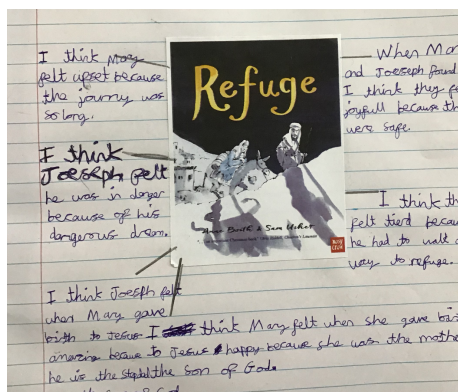 I think Mary
felt upset because
the journey was
so long.
I think
Joeseph felt
he was in
because of his
dangerous dream.
Refuge
Anne Booth & Sam Usher
When Mar
and Joeseph found
I think they fe
joyfull because th
were safe.
I think th
felt tierd becau
he had to walk a
way to refuge.
I think Joesph felt
when Mary gave
birth to Jesus
amazing because
he is the
I think Mary felt when she gave bir
to Jesus happy because she was the mothe
the son of God.